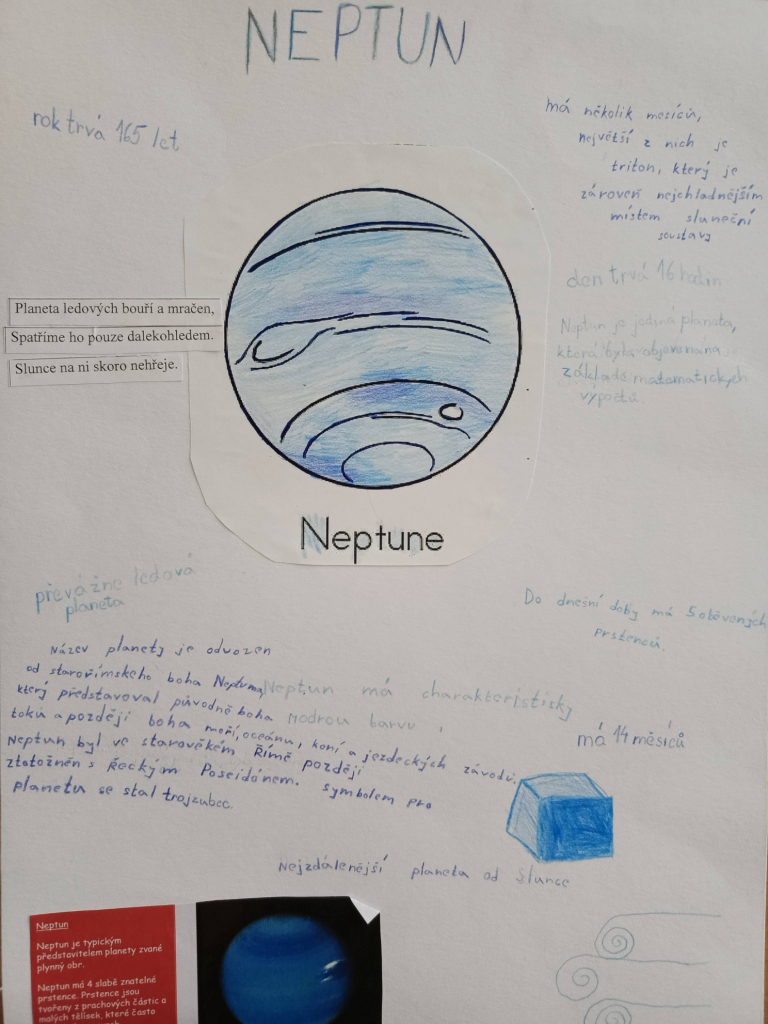 NEPTUN
rok trvá 165 let
má několik měsíců,
největší z nich je
triton, který je
zároveň nejchladnějším
místem sluneční
soustavy
den trvá 16 hodin
Neptun je jediná planeta,
která byla objevena na
základě matematických
výpočtů.
Planeta ledových bouří a mračen,
Spatříme ho pouze dalekohledem.
Slunce na ni skoro nehřeje.
Neptune
převážne ledová
planeta
Do dnešní doby má 5 oběvených
prstenců.
Název planety je odvozen
od starořímskeho boha Neptuna,
který představoval původně boha
toku a později boha moří, oceánu, koní a jezdeckých závodů.
Neptun byl ve starověkém Římě později
ztotožněn s Řeckým Poseidónem. symbolem pro
planetu se stal trojzubec.
Neptun má charakteristisky
modrou barvu
má 14 měsíců
Nejzdálenější planeta od Slunce
Neptun
Neptun je typickým
představitelem planety zvané
plynný obr.
Neptun má 4 slabě znatelné
prstence. Prstence jsou
tvořeny z prachových částic a
malých tělísek, které často